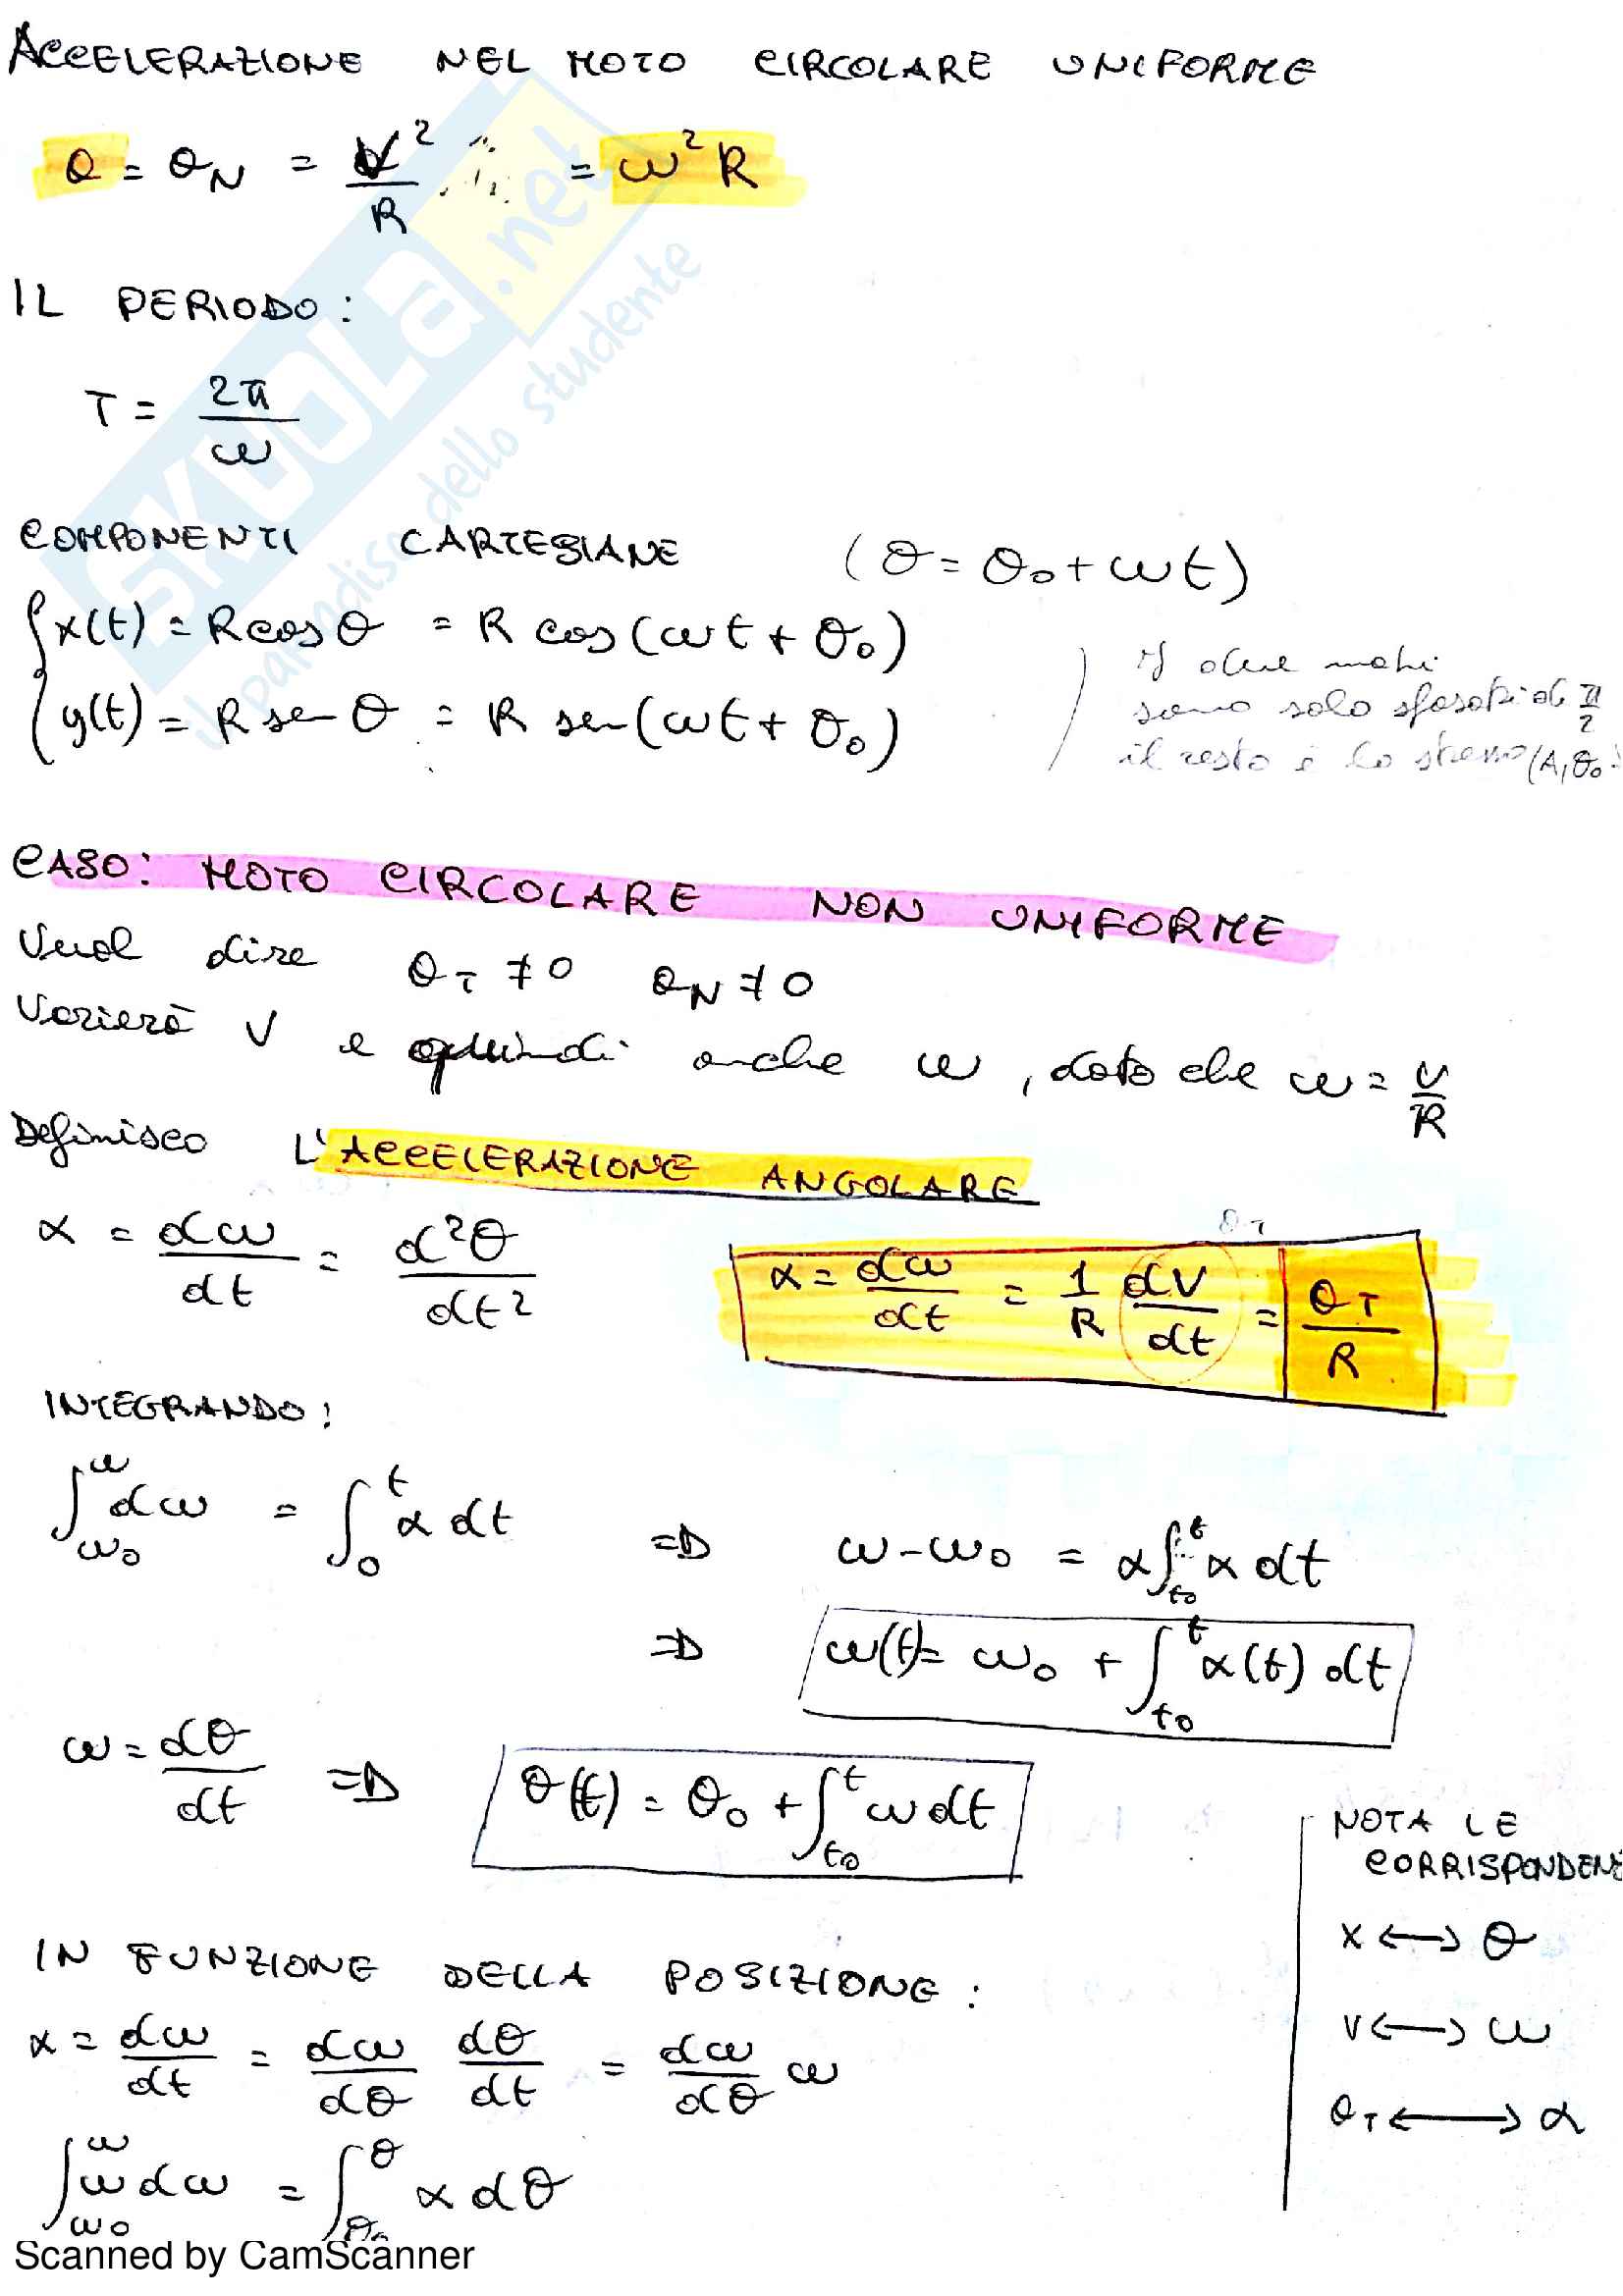 ACCELERAZIONE NEL MOTO CIRCOLARE UNIFORME
a = a_N = v²/R = ω²R
IL PERIODO:
T = 2π/ω
COMPONENTI CARTESIANE (θ = θ₀ + ωt)
{ x(t) = R cos θ = R cos(ωt + θ₀)
{ y(t) = R sen θ = R sen(ωt + θ₀)
I due moti
sono solo sfasati di π/2
il resto è lo stesso (A, θ₀
CASO: MOTO CIRCOLARE NON UNIFORME
Vuol dire a_T ≠ 0 a_N ≠ 0
Varierà V e quindi anche ω, dato che ω = v/R
Definisco L'ACCELERAZIONE ANGOLARE
α = dω/dt = d²θ/dt²
a_T
α = dω/dt = 1/R dv/dt = a_T/R
INTEGRANDO:
∫_ω₀^ω dω = ∫_0^t α dt => ω - ω₀ = α∫_t₀^t α dt
=> ω(t) = ω₀ + ∫_t₀^t α(t) dt
ω = dθ/dt => θ(t) = θ₀ + ∫_t₀^t ω dt
NOTA LE
CORRISPONDENZ
x ↔ θ
v ↔ ω
a_T ↔ α
IN FUNZIONE DELLA POSIZIONE:
α = dω/dt = dω/dθ dθ/dt = dω/dθ ω
∫_ω₀^ω ω dω = ∫_θ₀^θ α dθ
Scanned by CamScanner
SKUOLA.net
il paradiso dello studente